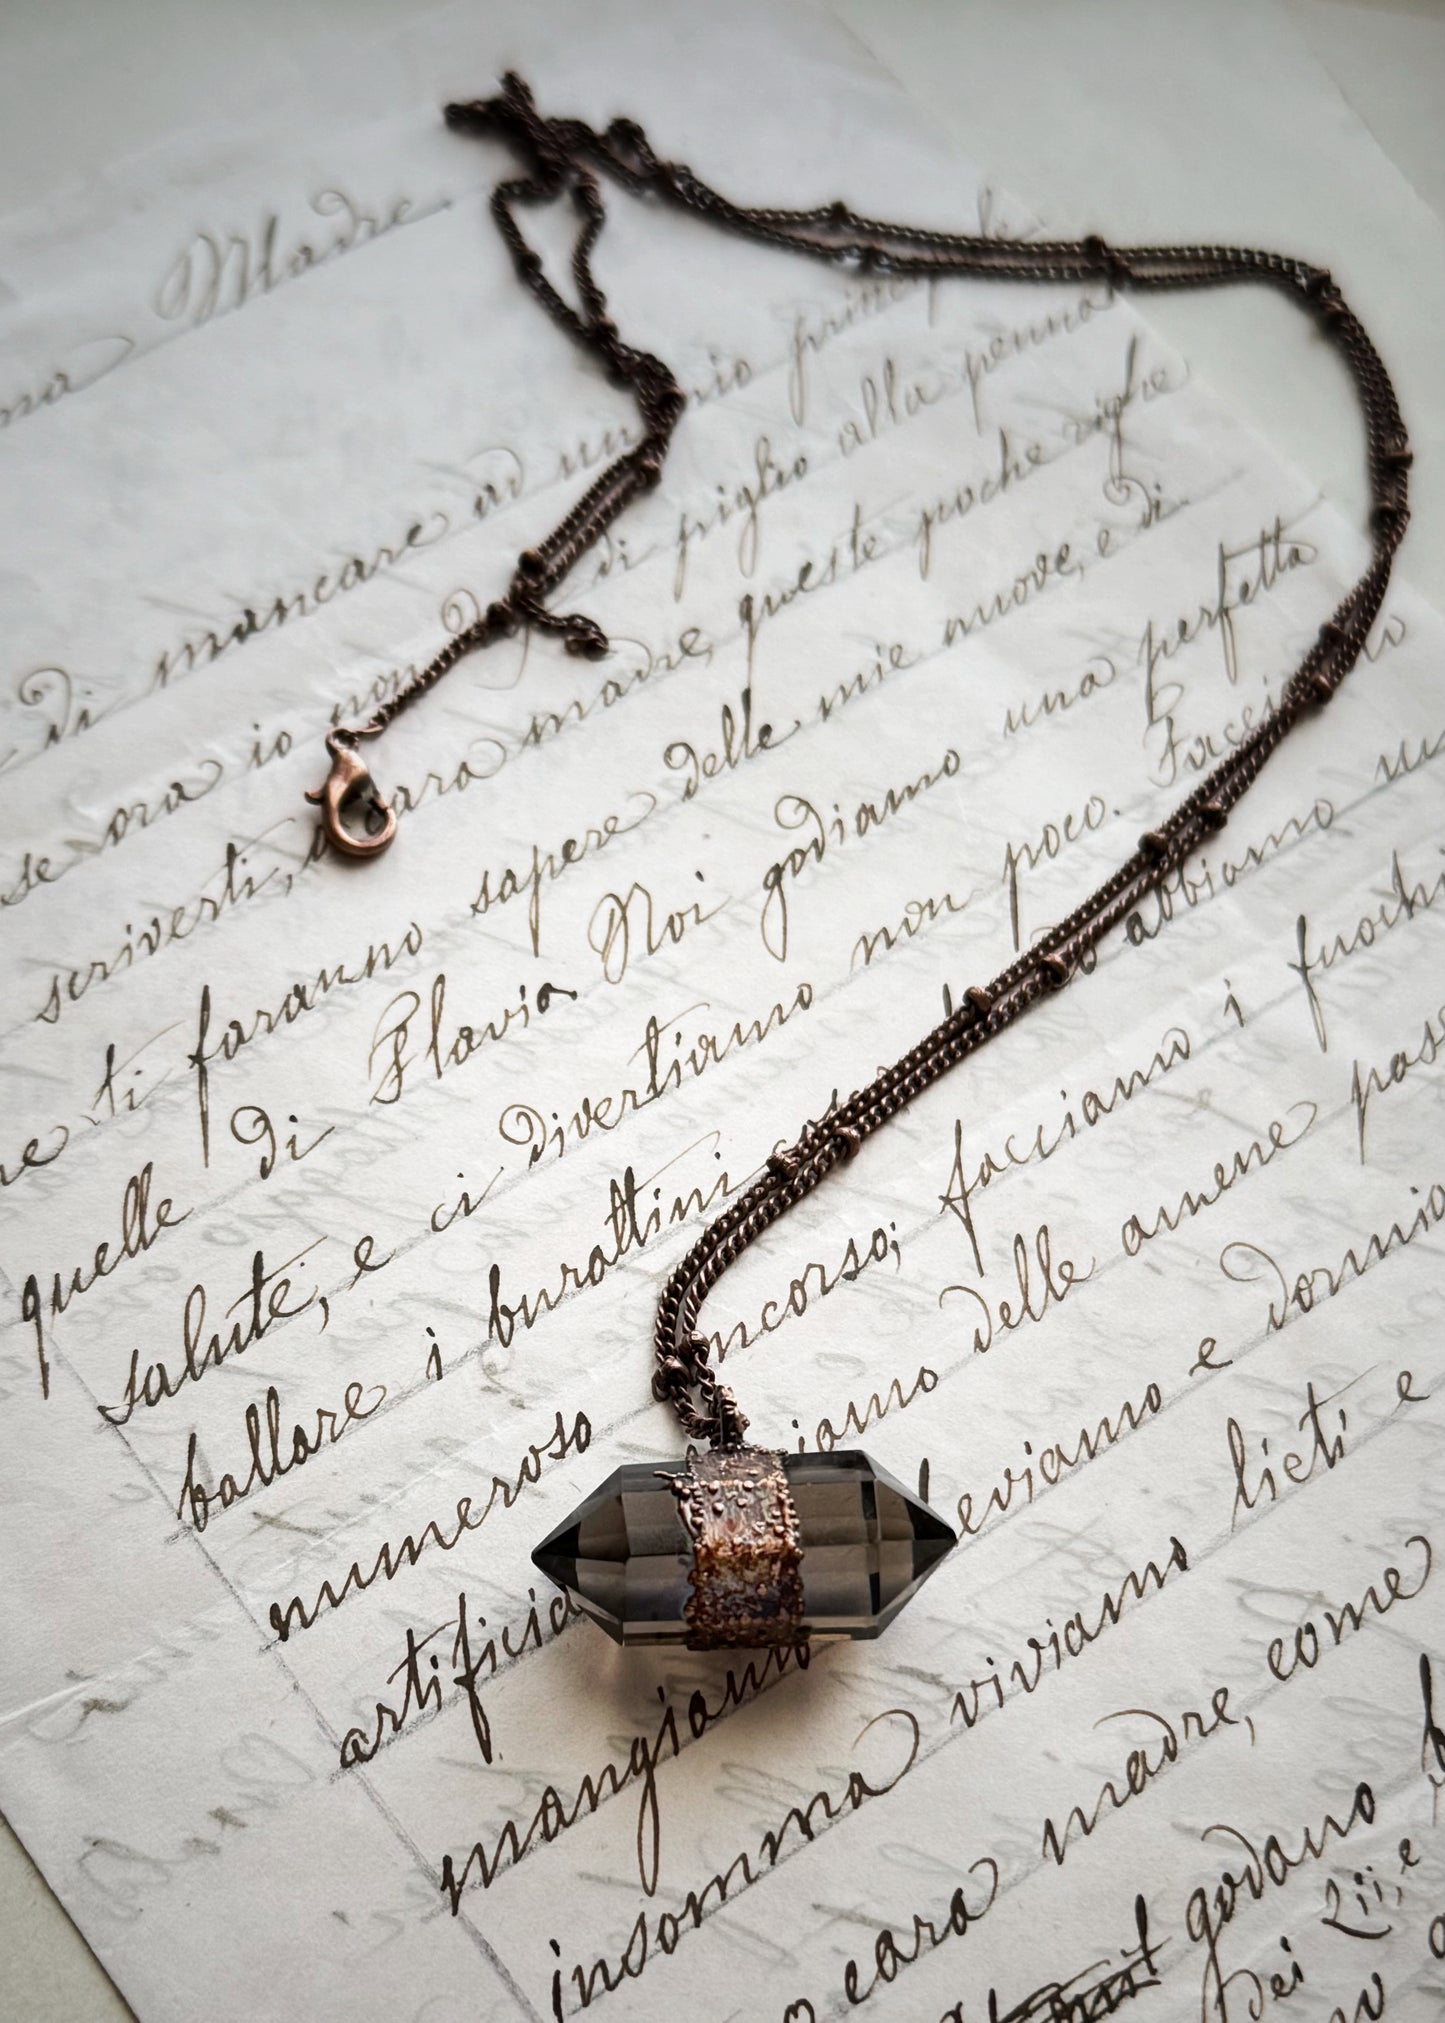 Madre.
di mancare ad un mio
se ora io non di piglio alla penna
scriverti, cara madre, queste poche righe
ti faranno sapere delle mie nuove, e di
quelle di Flavia. Noi godiamo una perfetta
salute, e ci divertiamo non poco. Facci
ballare i burattini abbiamo
numeroso concorso; facciamo i fuochi
artificia delle amene pass
mangiamo beviamo e dormia
insomma viviamo lieti e
cara madre, come
godano
dei zii, e